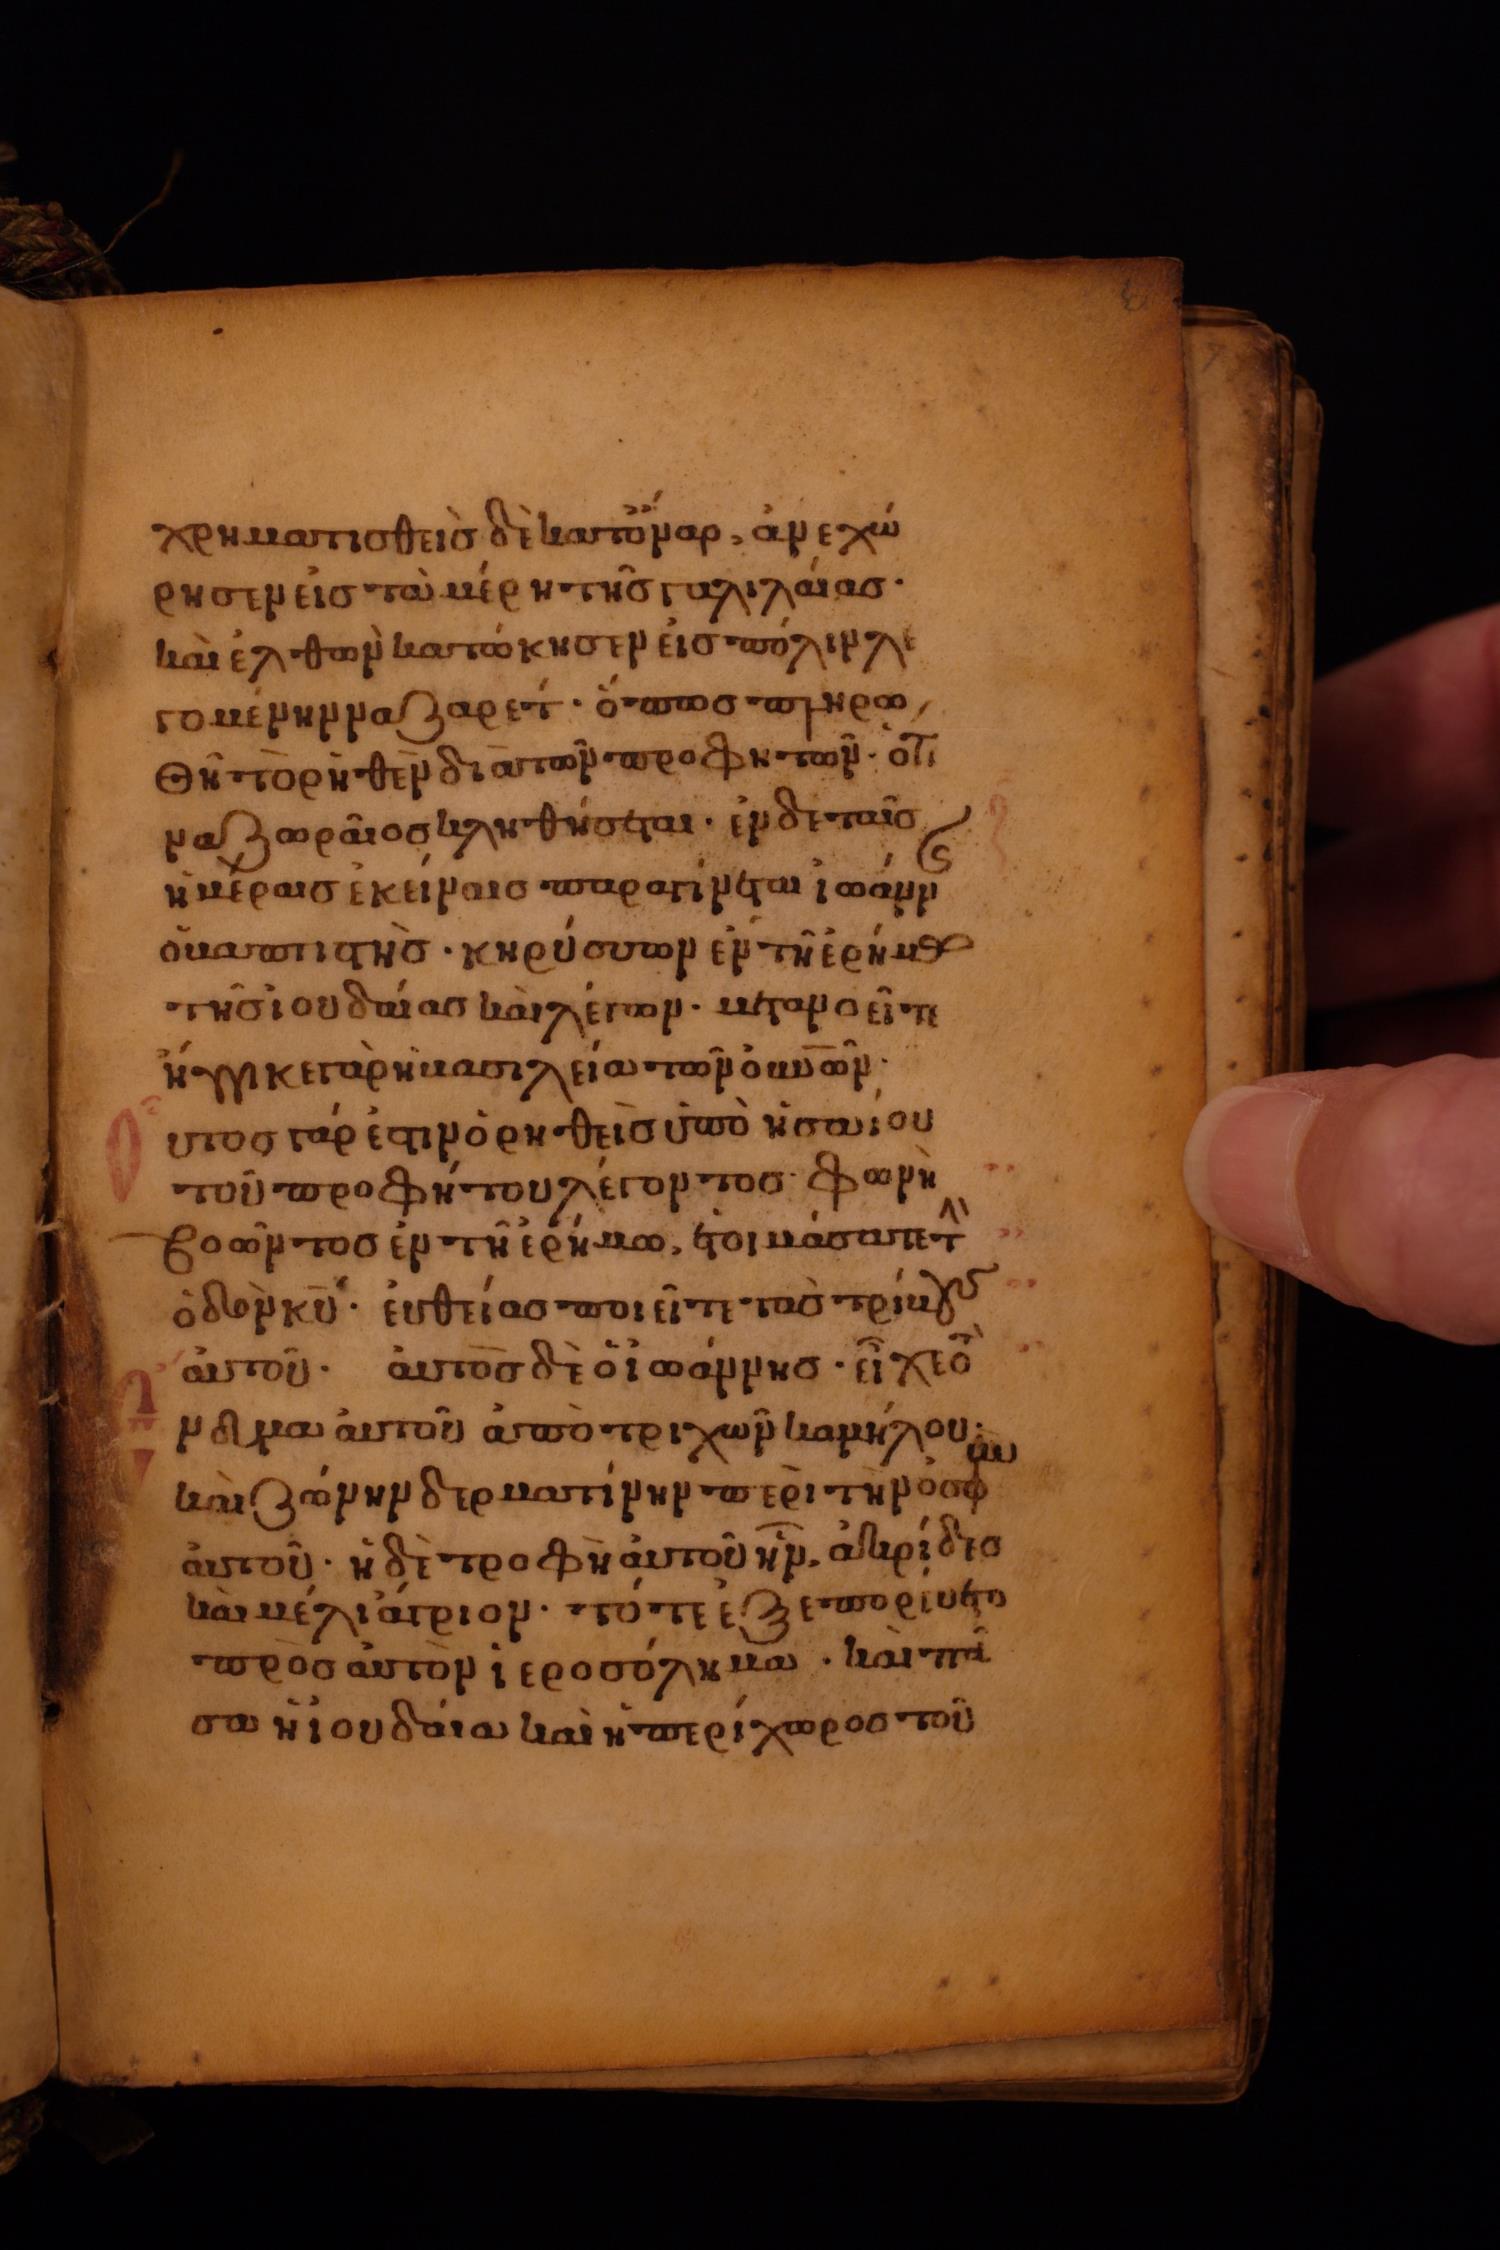 χρηματισθεὶσ δὲ κατ ὄναρ, ἀνεχώ
ρησεν εἰσ τὰ μέρη τῆσ γαλιλαίασ·
καὶ ἐλθὼν κατώκησεν εἰσ πόλιν λε
γομένην ναζαρετ· ὅπωσ πληρω
θῆ τὸ ῥηθὲν διὰ τῶν προφητῶν· ὅτι
ναζωραῖοσ κληθήσεται· ἐν δε ταῖσ
ἡμέραισ ἐκείναισ παραγίνεται ἰωάνν
ὁ βαπτιστὴσ· κηρύσσων ἐν τῆ ἐρήμω
τῆσ ἰουδαίασ καὶ λέγων· μεταμοεῖτε
ἤγγικε γὰρ ἡ βασιλεία τῶν οὐνῶν·
υτοσ γάρ ἐστιν ὁ ρηθεὶσ ὑπὸ ἡσαίου
τοῦ προφήτου λέγοντοσ· φωνὴ
βοῶντοσ ἐν τῆ ἐρήμω, ἑτοιμάσατε τ
ὁδὸν κῡ· ἐυθείασ ποιεῖτε τὰσ τρίβουσ
ἀυτοῦ· ἀυτὸσ δὲ ὁ ἰωάννησ· εἶχε τὸ
νδυμα ἀυτοῦ ἀπὸ τριχῶν καμήλου·
καὶ ζώνην δερματίνην περὶ τὴν ὀσφὺν
ἀυτοῦ· ἡ δὲ τροφὴ ἀυτοῦ ἦν, ἀκρίδεσ
καὶ μέλι ἄγριον· τότε ἐξεπορέυετο
πρὸσ ἀυτὸν ἱεροσόλημα· καὶ πᾶ
σα ἡ ἰουδάια καὶ ἡ περίχωροσ τοῦ